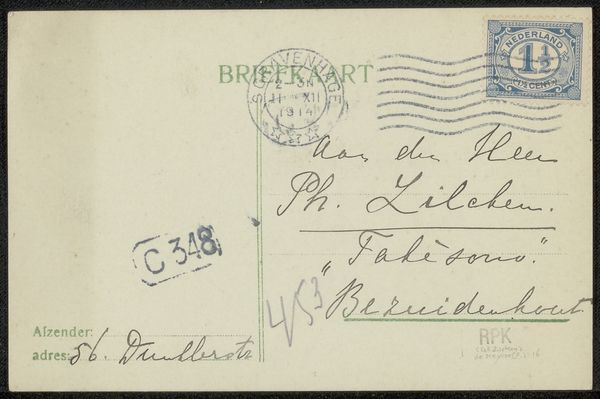 BRIEFKAART
'S GRAVENHAGE
2-3N
11 XII
1914
NEDERLAND
1½
1½ CENT
Aan den Heer
Ph. Zilcken.
"Hélène-Villa"
Bezuidenhout
C 348
453
Afzender:
adres: 56.
RPK